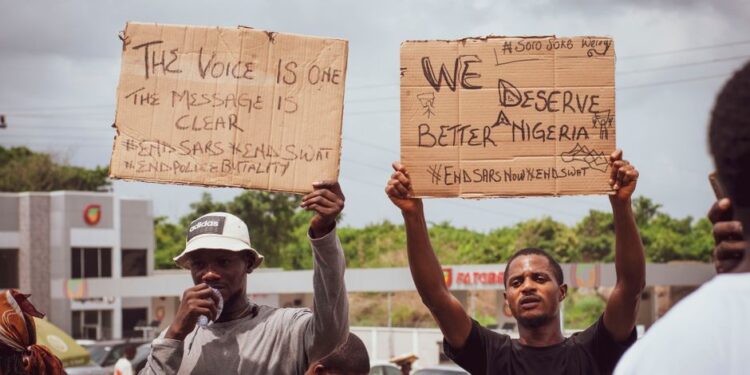 THE VOICE IS ONE
THE MESSAGE IS
CLEAR
#ENDSARS #ENDSWAT
#ENDPOLICE BUTALITY
adidas
#SORO SOKE Werey
WE DESERVE
BETTER A NIGERIA
#ENDSARS NOW #ENDSWAT